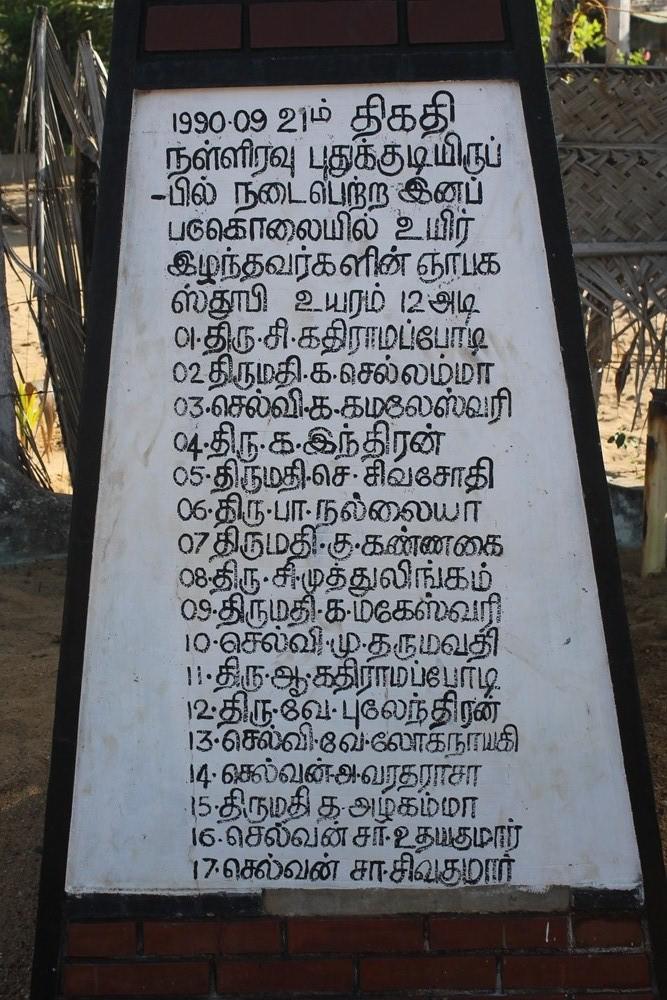 1990·09 21ம் திகதி
நள்ளிரவு புதுக்குடியிருப்
-பில் நடைபெற்ற இனப்
படுகொலையில் உயிர்
இழந்தவர்களின் ஞாபக
ஸ்தூபி உயரம் 12 அடி
01·திரு·சி·கதிராமப்போடி
02·திருமதி·க·செல்லம்மா
03·செல்வி·க·கமலேஸ்வரி
04·திரு·க·இந்திரன்
05·திருமதி·செ·சிவசோதி
06·திரு·பா·நல்லையா
07·திருமதி·கு·கண்ணகை
08·திரு·சி·முத்துலிங்கம்
09·திருமதி·க·மகேஸ்வரி
10·செல்வி·மு·தருமவதி
11·திரு·ஆ·கதிராமப்போடி
12·திரு·வே·புலேந்திரன்
13·செல்வி·வே·லோகநாயகி
14·செல்வன்·அ·வரதராசா
15·திருமதி த·அழகம்மா
16·செல்வன் சா·உதயகுமார்
17·செல்வன் சா·சிவகுமார்